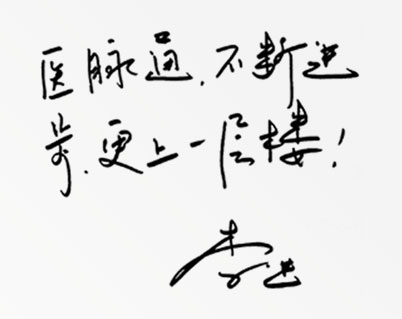 医脉通，不断进
步，更上一层楼！
李进